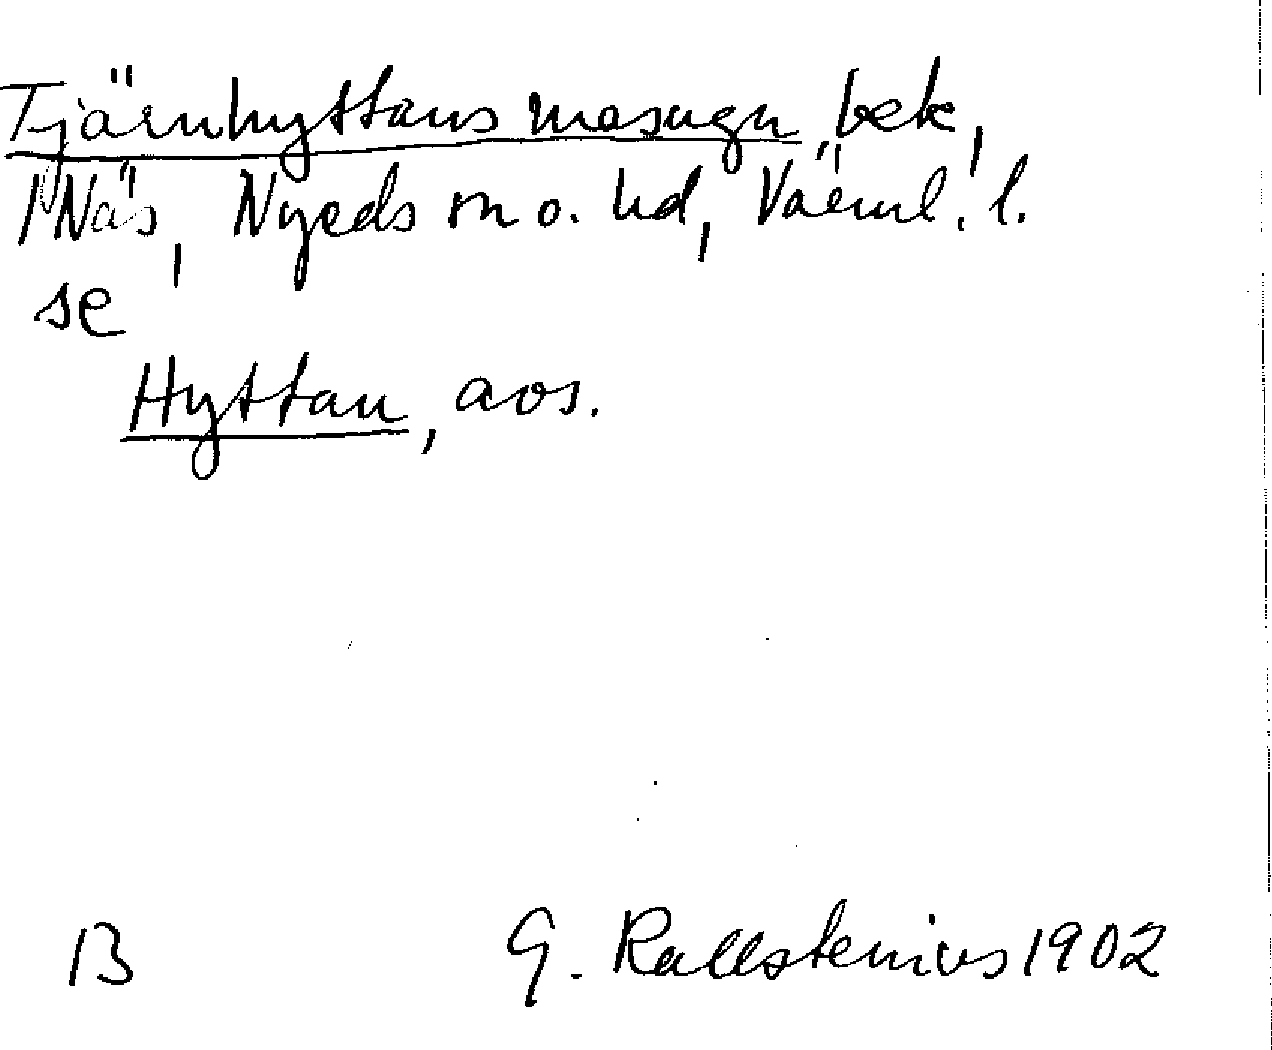 Tjärnhyttans masugn, bek,
Näs, Nyeds sn o. hd, Värml. l.
se
Hyttan, aos.
B G. Kallstenius 1902